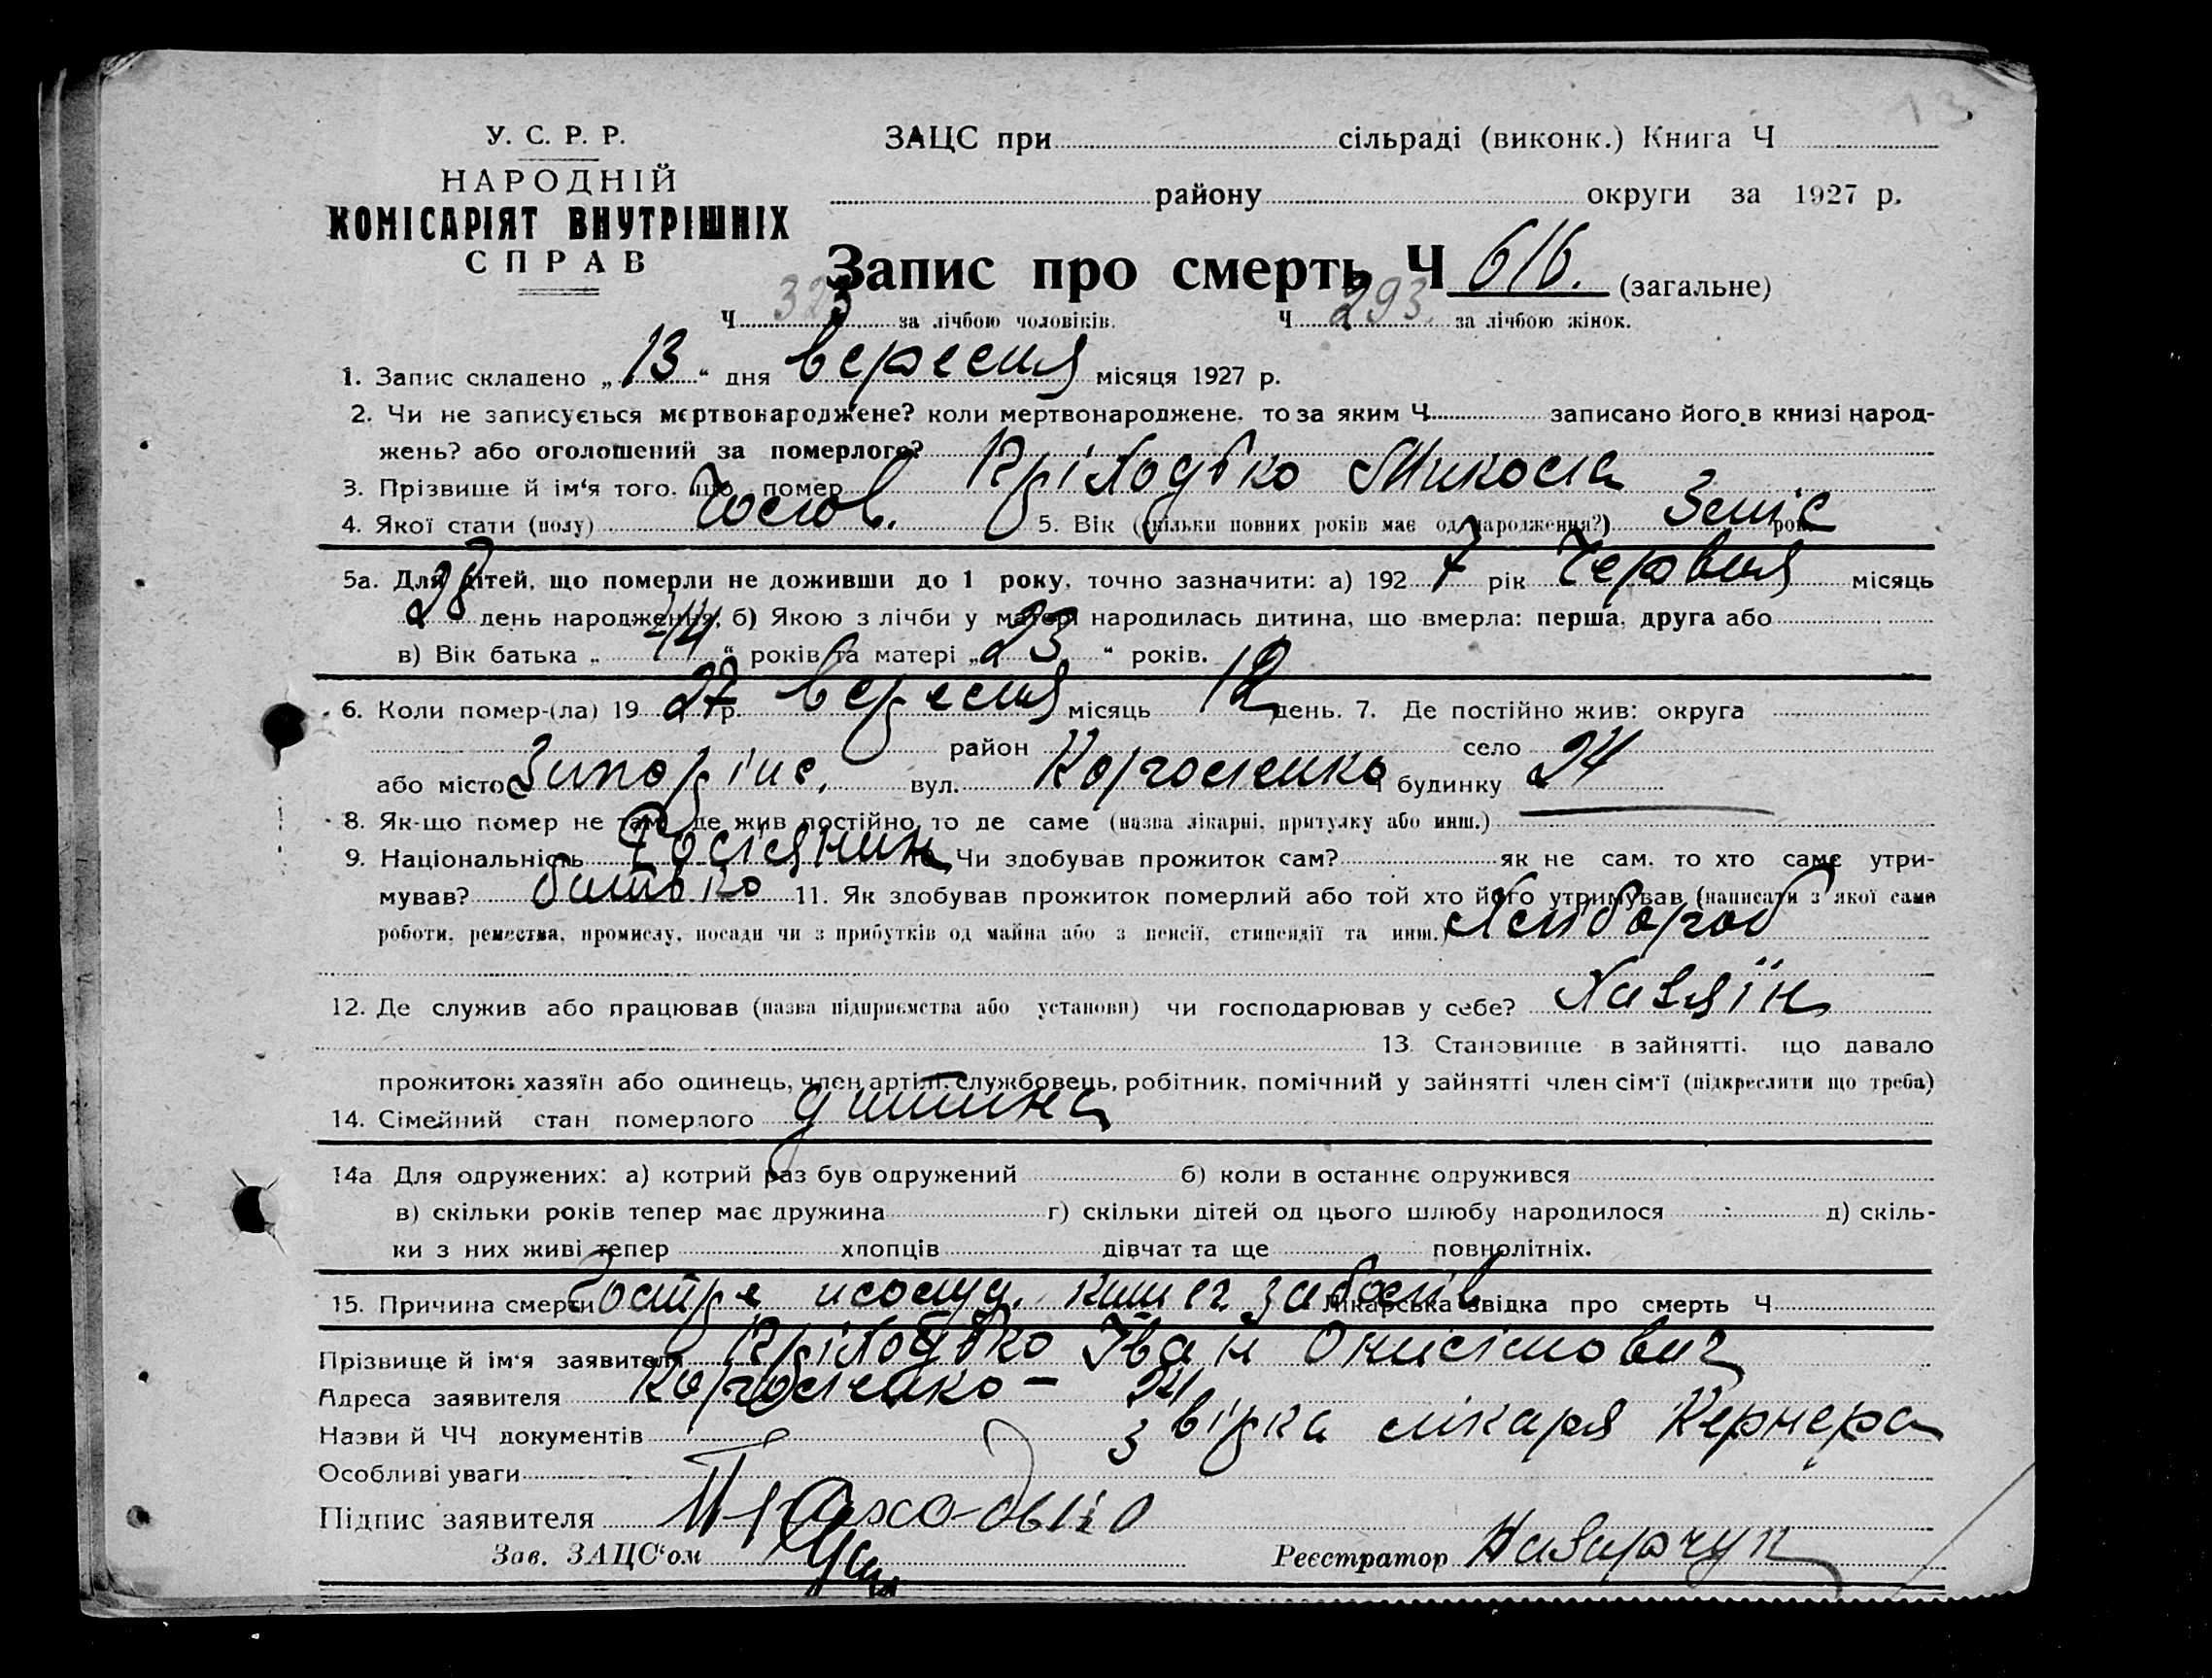 У. С. Р. Р.
НАРОДНІЙ
КОМІСАРІЯТ ВНУТРІШНІХ
СПРАВ
ЗАЦС при сільраді (виконк.) Книга Ч
району округи за 1927 р.
Запис про смерть Ч 616. (загальне)
Ч 323 за лічбою чоловіків. Ч 293 за лічбою жінок.
1. Запис складено „ 13 “ дня вересня місяця 1927 р.
2. Чи не записується мертвонароджене? коли мертвонароджене, то за яким Ч записано його в книзі народ-
жень? або оголошений за померлого?
3. Прізвище й ім'я того, що помер Микола
4. Якої стати (полу) Чолов. 5. Вік (скільки повних років має од народження?) 3 міс рок.
5а. Для дітей, що померли не доживши до 1 року, точно зазначити: а) 192 7 рік Червня місяць
28 день народження, б) Якою з лічби у матері народилась дитина, що вмерла: перша, друга або
в) Вік батька „ 44 “ років та матері „ 23 “ років.
6. Коли помер-(ла) 19 27 р. вересня місяць 12 день. 7. Де постійно жив: округа
район село
або місто вул. будинку 24
8. Як-що помер не там, де жив постійно, то де саме (назва лікарні, притулку або инш.)
9. Національність Росіянин Чи здобував прожиток сам? як не сам, то хто саме утри-
мував? батько 11. Як здобував прожиток померлий або той хто його утримував (написати з якої саме
роботи, ремества, промислу, посади чи з прибутків од майна або з пенсії, стипендії та инш.)
12. Де служив або працював (назва підприємства або установи) чи господарював у себе? Хазяїн
13. Становище в зайнятті, що давало
прожиток: хазяїн або одинець, член артілі, службовець, робітник, помічний у зайнятті член сім'ї (підкреслити що треба)
14. Сімейний стан померлого дитина
14а Для одружених: а) котрий раз був одружений б) коли в останнє одружився
в) скільки років тепер має дружина г) скільки дітей од цього шлюбу народилося д) скіль-
ки з них живі тепер хлопців дівчат та ще повнолітніх.
15. Причина смерти Лікарська звідка про смерть Ч
Прізвище й ім'я заявителя Іван Онисімович
Адреса заявителя 24
Назви й ЧЧ документів звідка лікаря Кернера
Особливі уваги
Підпис заявителя
Зав. ЗАЦС'ом Реєстратор Назарчук